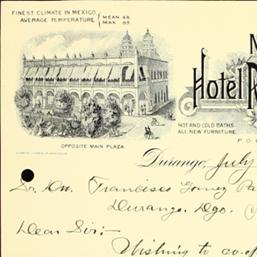 FINEST CLIMATE IN MEXICO.
AVERAGE TEMPERATURE, { MEAN 65
MAX 85
Hotel R
HOT AND COLD BATHS.
ALL NEW FURNITURE.
OPPOSITE MAIN PLAZA.
P. O.
Durango, July
Sr. Dn. Francisco Gomez Pa
Durango. Dgo.
Dear Sir:-
Wishing to co-o